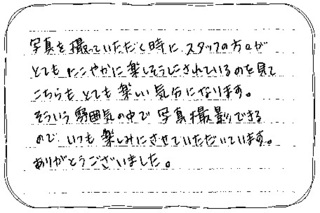 写真を撮っていただく時に、スタッフの方々が
とてもにこやかに楽しそうにされているのを見て
こちらも、とても楽しい気分になります。
そういう雰囲気の中で写真撮影できる
ので、いつも楽しみにさせていただいています。
ありがとうございました。